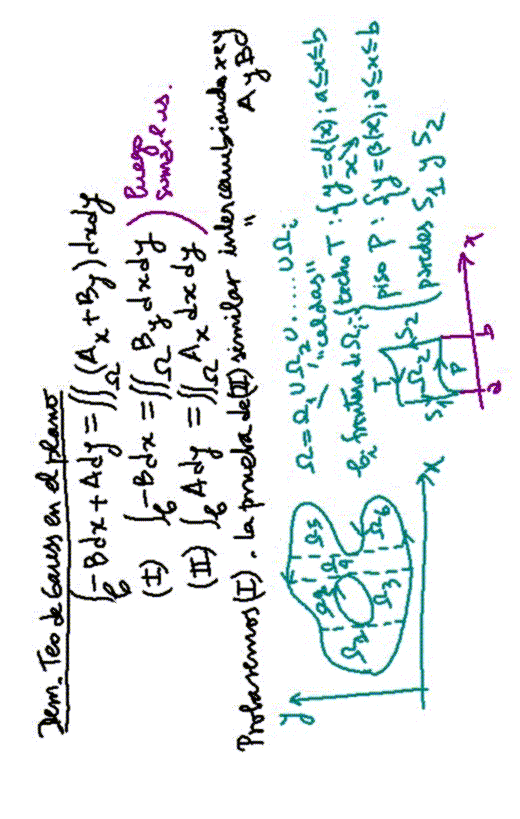 Dem. Teo de Gauss en el plano
∫_C -Bdx + Ady = ∬_Ω (A_x + B_y) dxdy
(I) ∫_C -Bdx = ∬_Ω B_y dxdy
(II) ∫_C Ady = ∬_Ω A_x dxdy
luego
sumarlas.
Probaremos (I). La prueba de (II) similar intercambiando x e y
" A y B
Ω = Ω_1 ∪ Ω_2 ∪ ..... ∪ Ω_i
"celdas"
C_i frontera de Ω_i: { techo T: { y = α(x); a ≤ x ≤ b
piso P: { y = β(x); a ≤ x ≤ b
paredes S_1 y S_2
y
x
Ω_1
Ω_2
Ω_3
Ω_4
Ω_5
Ω_6
T
S_1
Ω_i
S_2
P
a
b
x